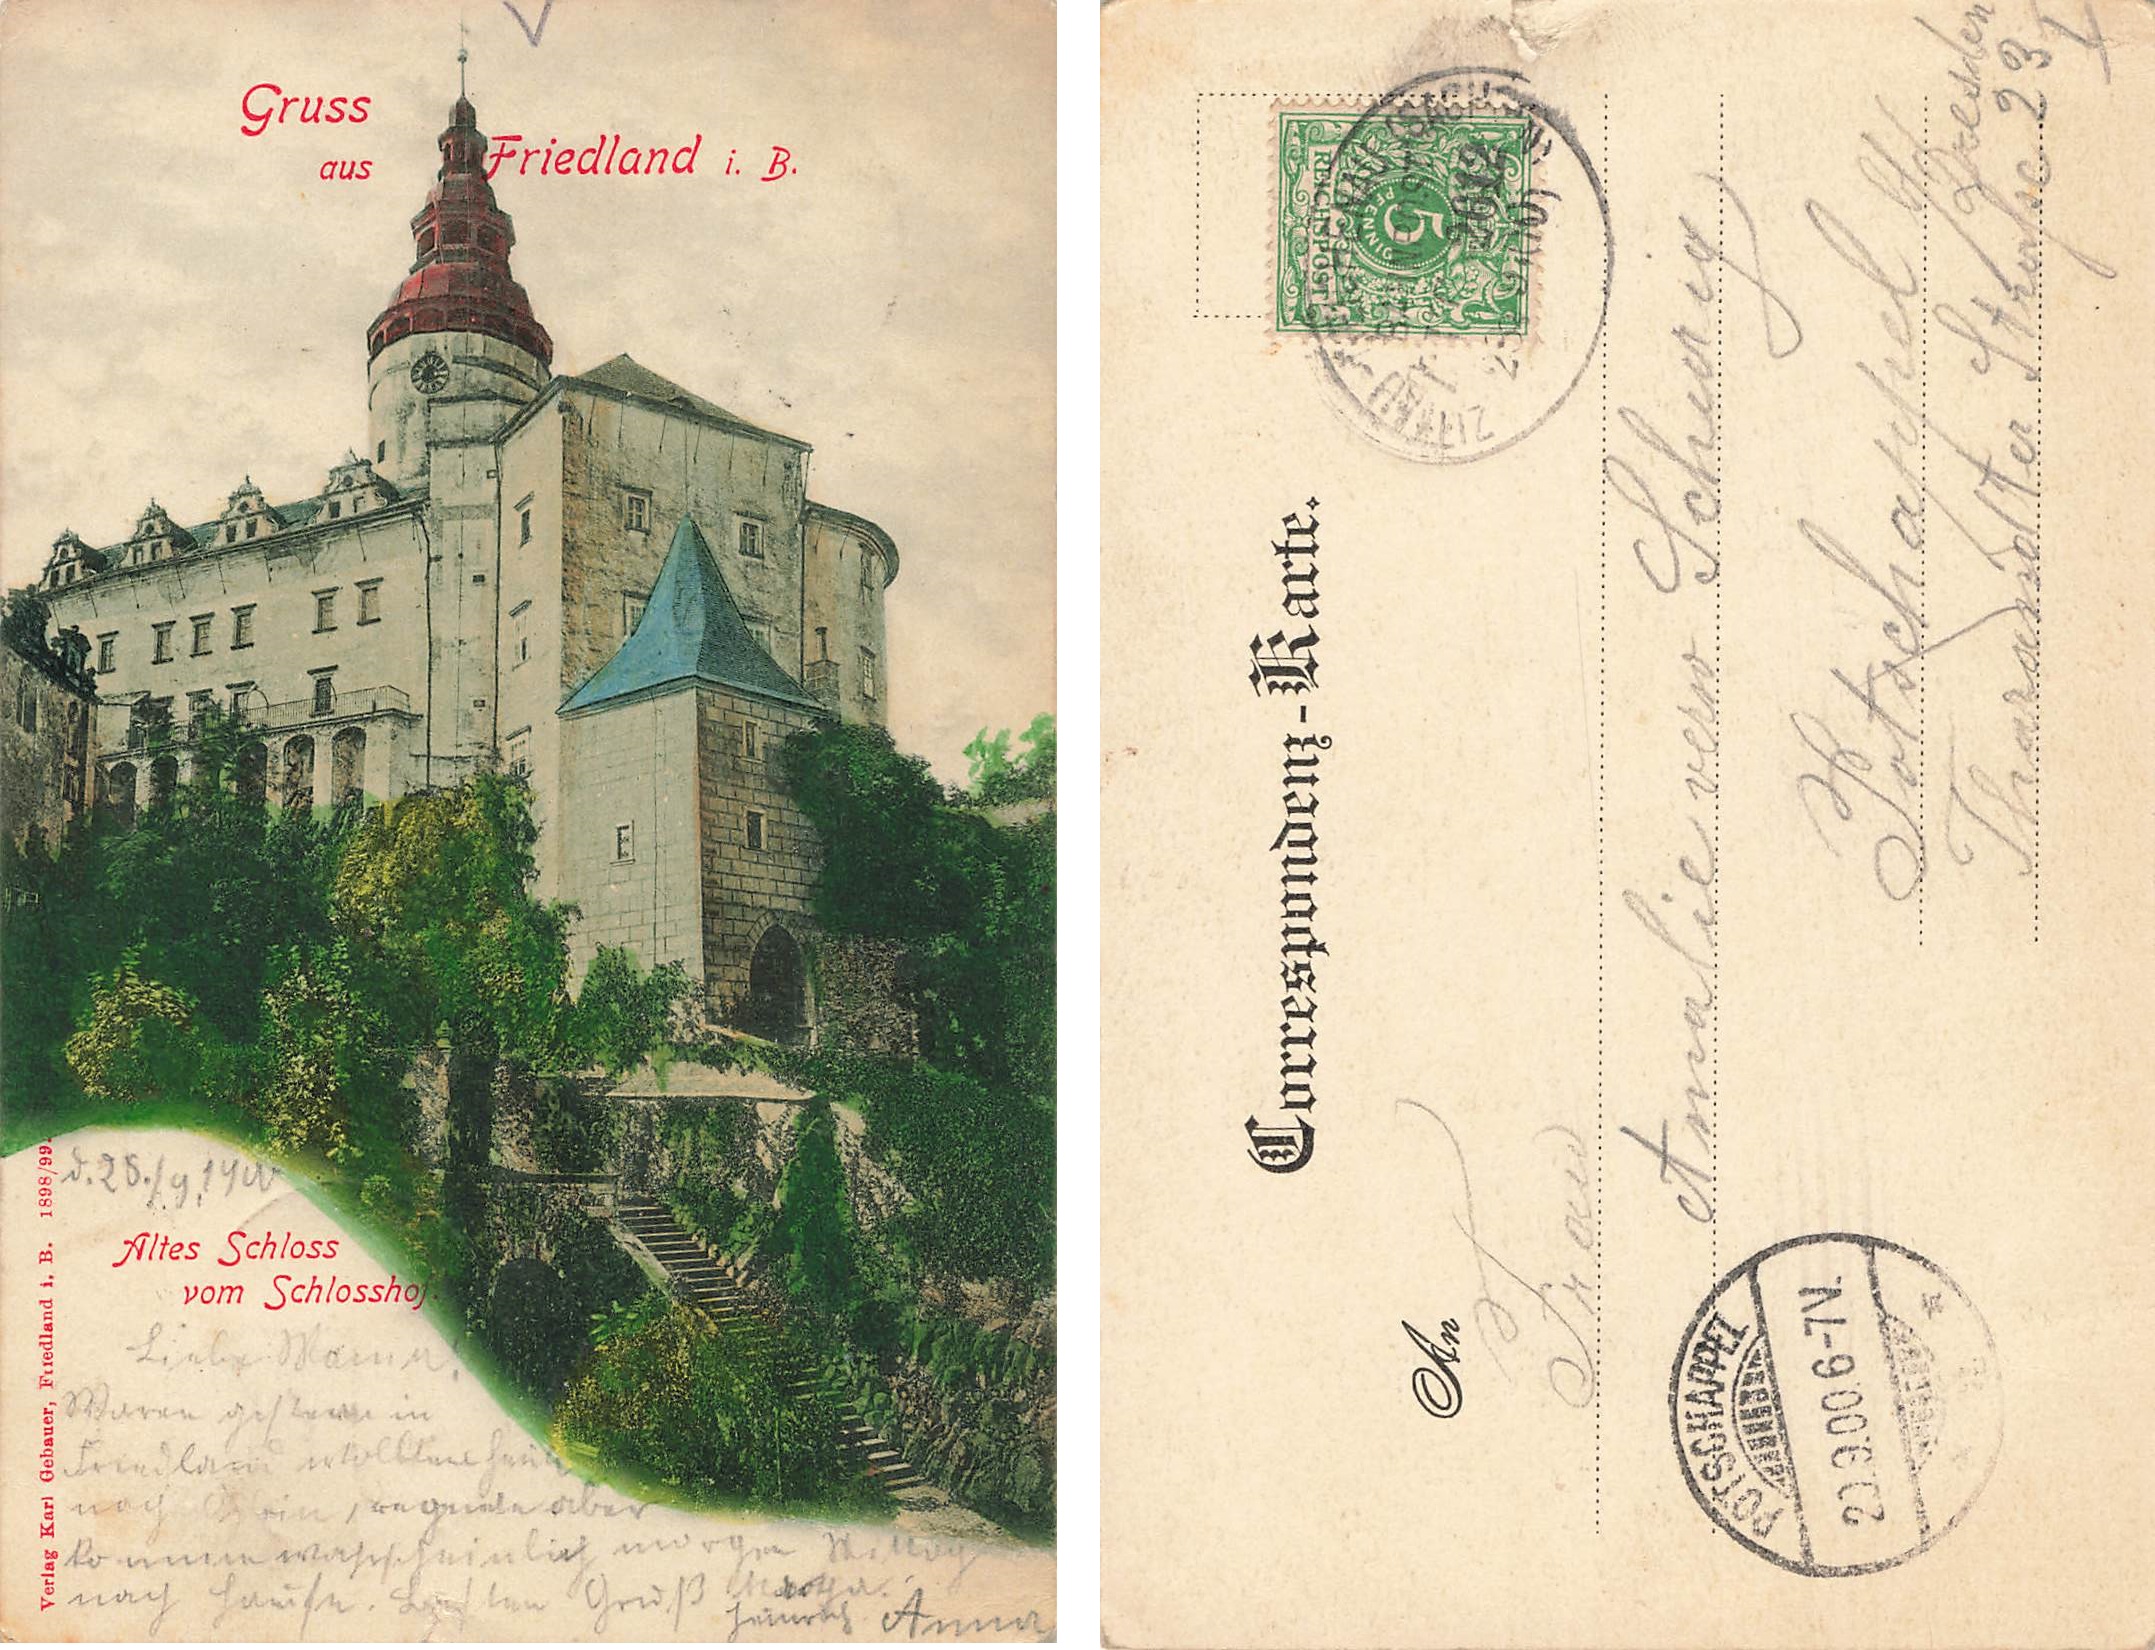 Gruss
aus Friedland i. B.
d. 28./9. 1900
Altes Schloss
vom Schlosshof.
Verlag Karl Gebauer, Friedland i. B. 1898/99.
Liebe Mama!
Waren gestern in
Friedland wollten heute
nach, regnete aber
kommen wahrscheinlich morgen Mittag
nach Hause. Besten Gruß
Heinrich Anna
Correspondenz-Karte.
REICHSPOST
5
PFENNIG
ZITTAU
An
Frau
Amalie verw Scheurig
Potschappel b/ Dresden
Tharandter Strasse 23 I
POTSCHAPPEL
29.9.00 6-7V.